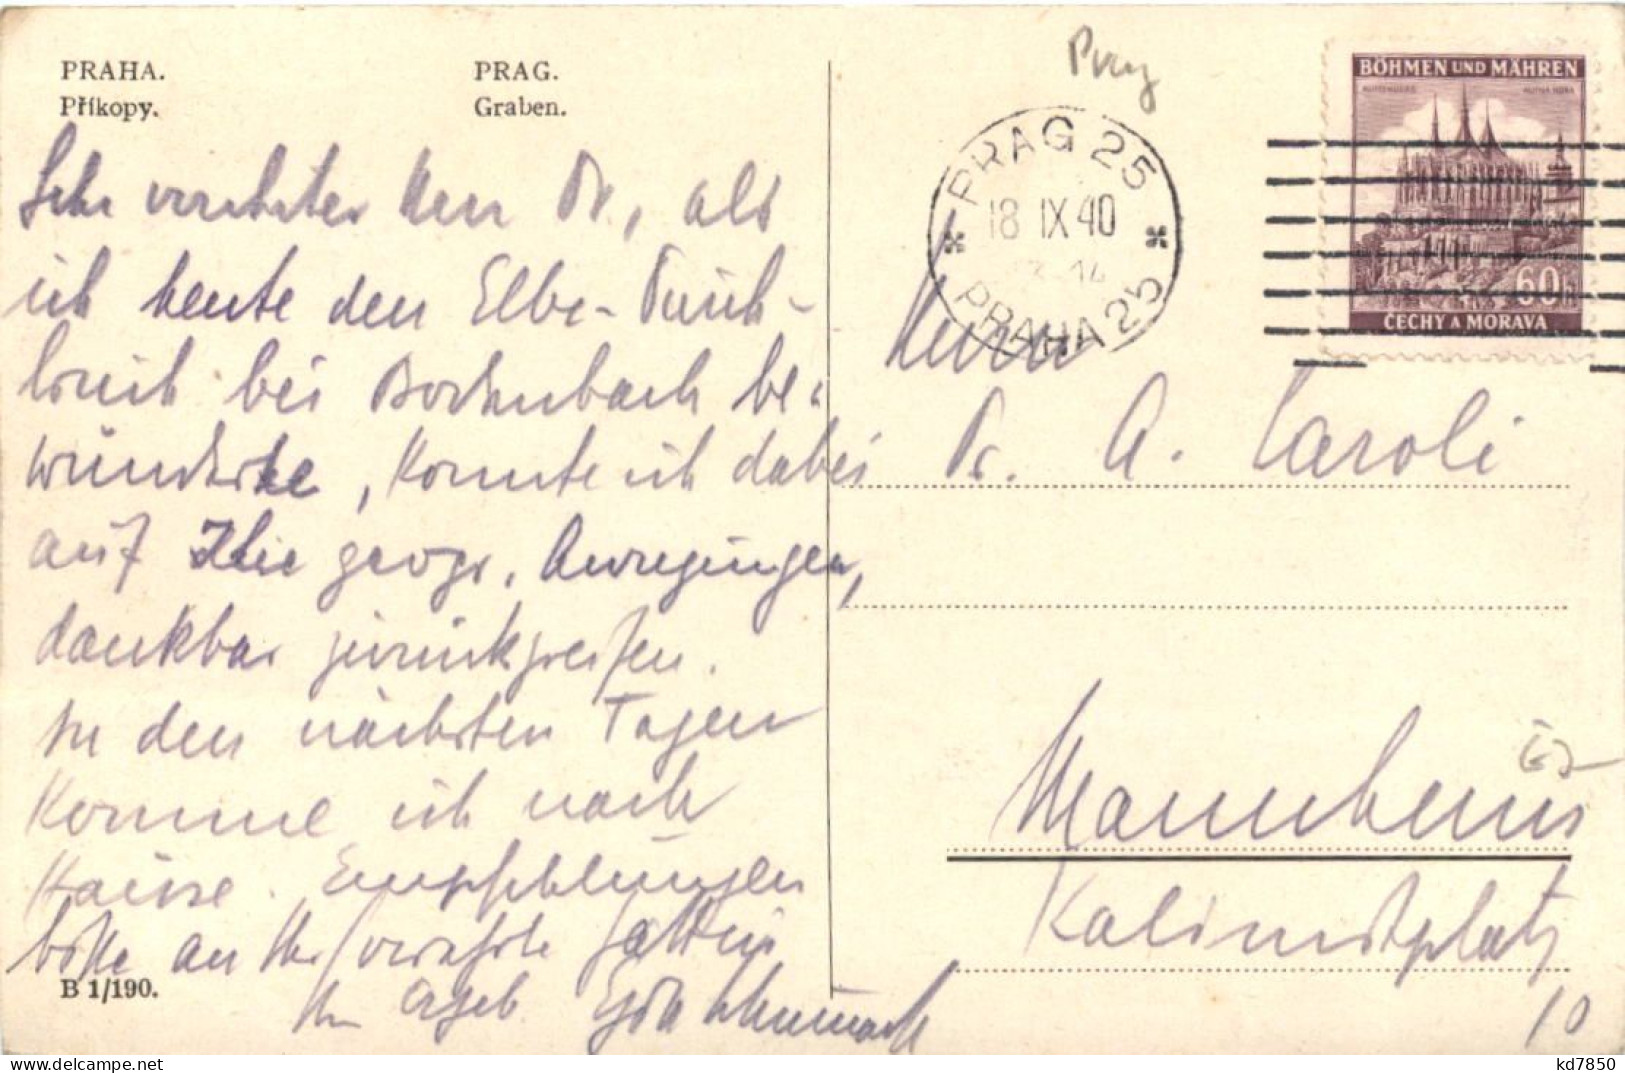 PRAHA.
Příkopy.
PRAG.
Graben.
Sehr verehrter Herr Dr., als
ich heute den Elbe-Durch-
bruch bei Bodenbach be-
wunderte, konnte ich dabei
auf Ihre geogr. Anregungen,
dankbar zurückgreifen.
In den nächsten Tagen
komme ich nach
Hause. Empfehlungen
bitte an Ihre verehrte Gattin
Ihr ergeb.
B 1/190.
Prag
PRAG 25
18 IX 40
PRAHA 25
BÖHMEN UND MÄHREN
KUTTENBERG
KUTNÁ HORA
60h
ČECHY A MORAVA
Herrn
Dr. A. Caroli
Mannheim
Kalimistplatz
10
kd7850